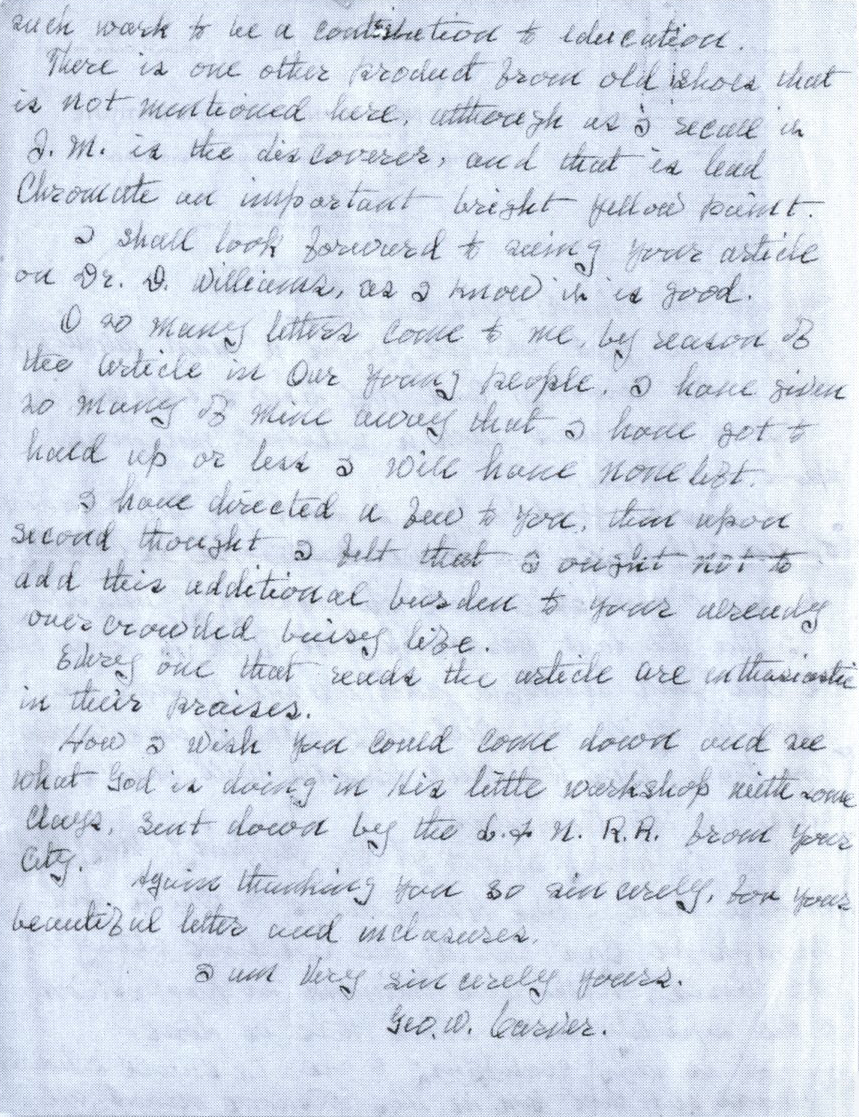 such work to be a contribution to education.
There is one other product from old shoes that
is not mentioned here, although as I recall it
J. M. is the discoverer, and that is lead
Chromate an important bright yellow paint.
I shall look forward to seeing your article
on Dr. D. Williams, as I know it is good.
O so many letters come to me, by reason of
the article in Our Young People. I have given
so many of mine away that I have got to
hold up or less I will have none left.
I have directed a few to you, then upon
second thought I felt that I ought not to
add this additional burden to your already
over crowded buisy life.
Every one that reads the article are inthusiastic
in their praises.
How I wish you could come down and see
what God is doing in His little workshop with some
Clays, sent down by the L. & N. R.R. from your
City.
Again thanking you so sincerely, for your
beautiful letter and inclosures.
I am Very sincerely yours.
Geo. W. Carver.